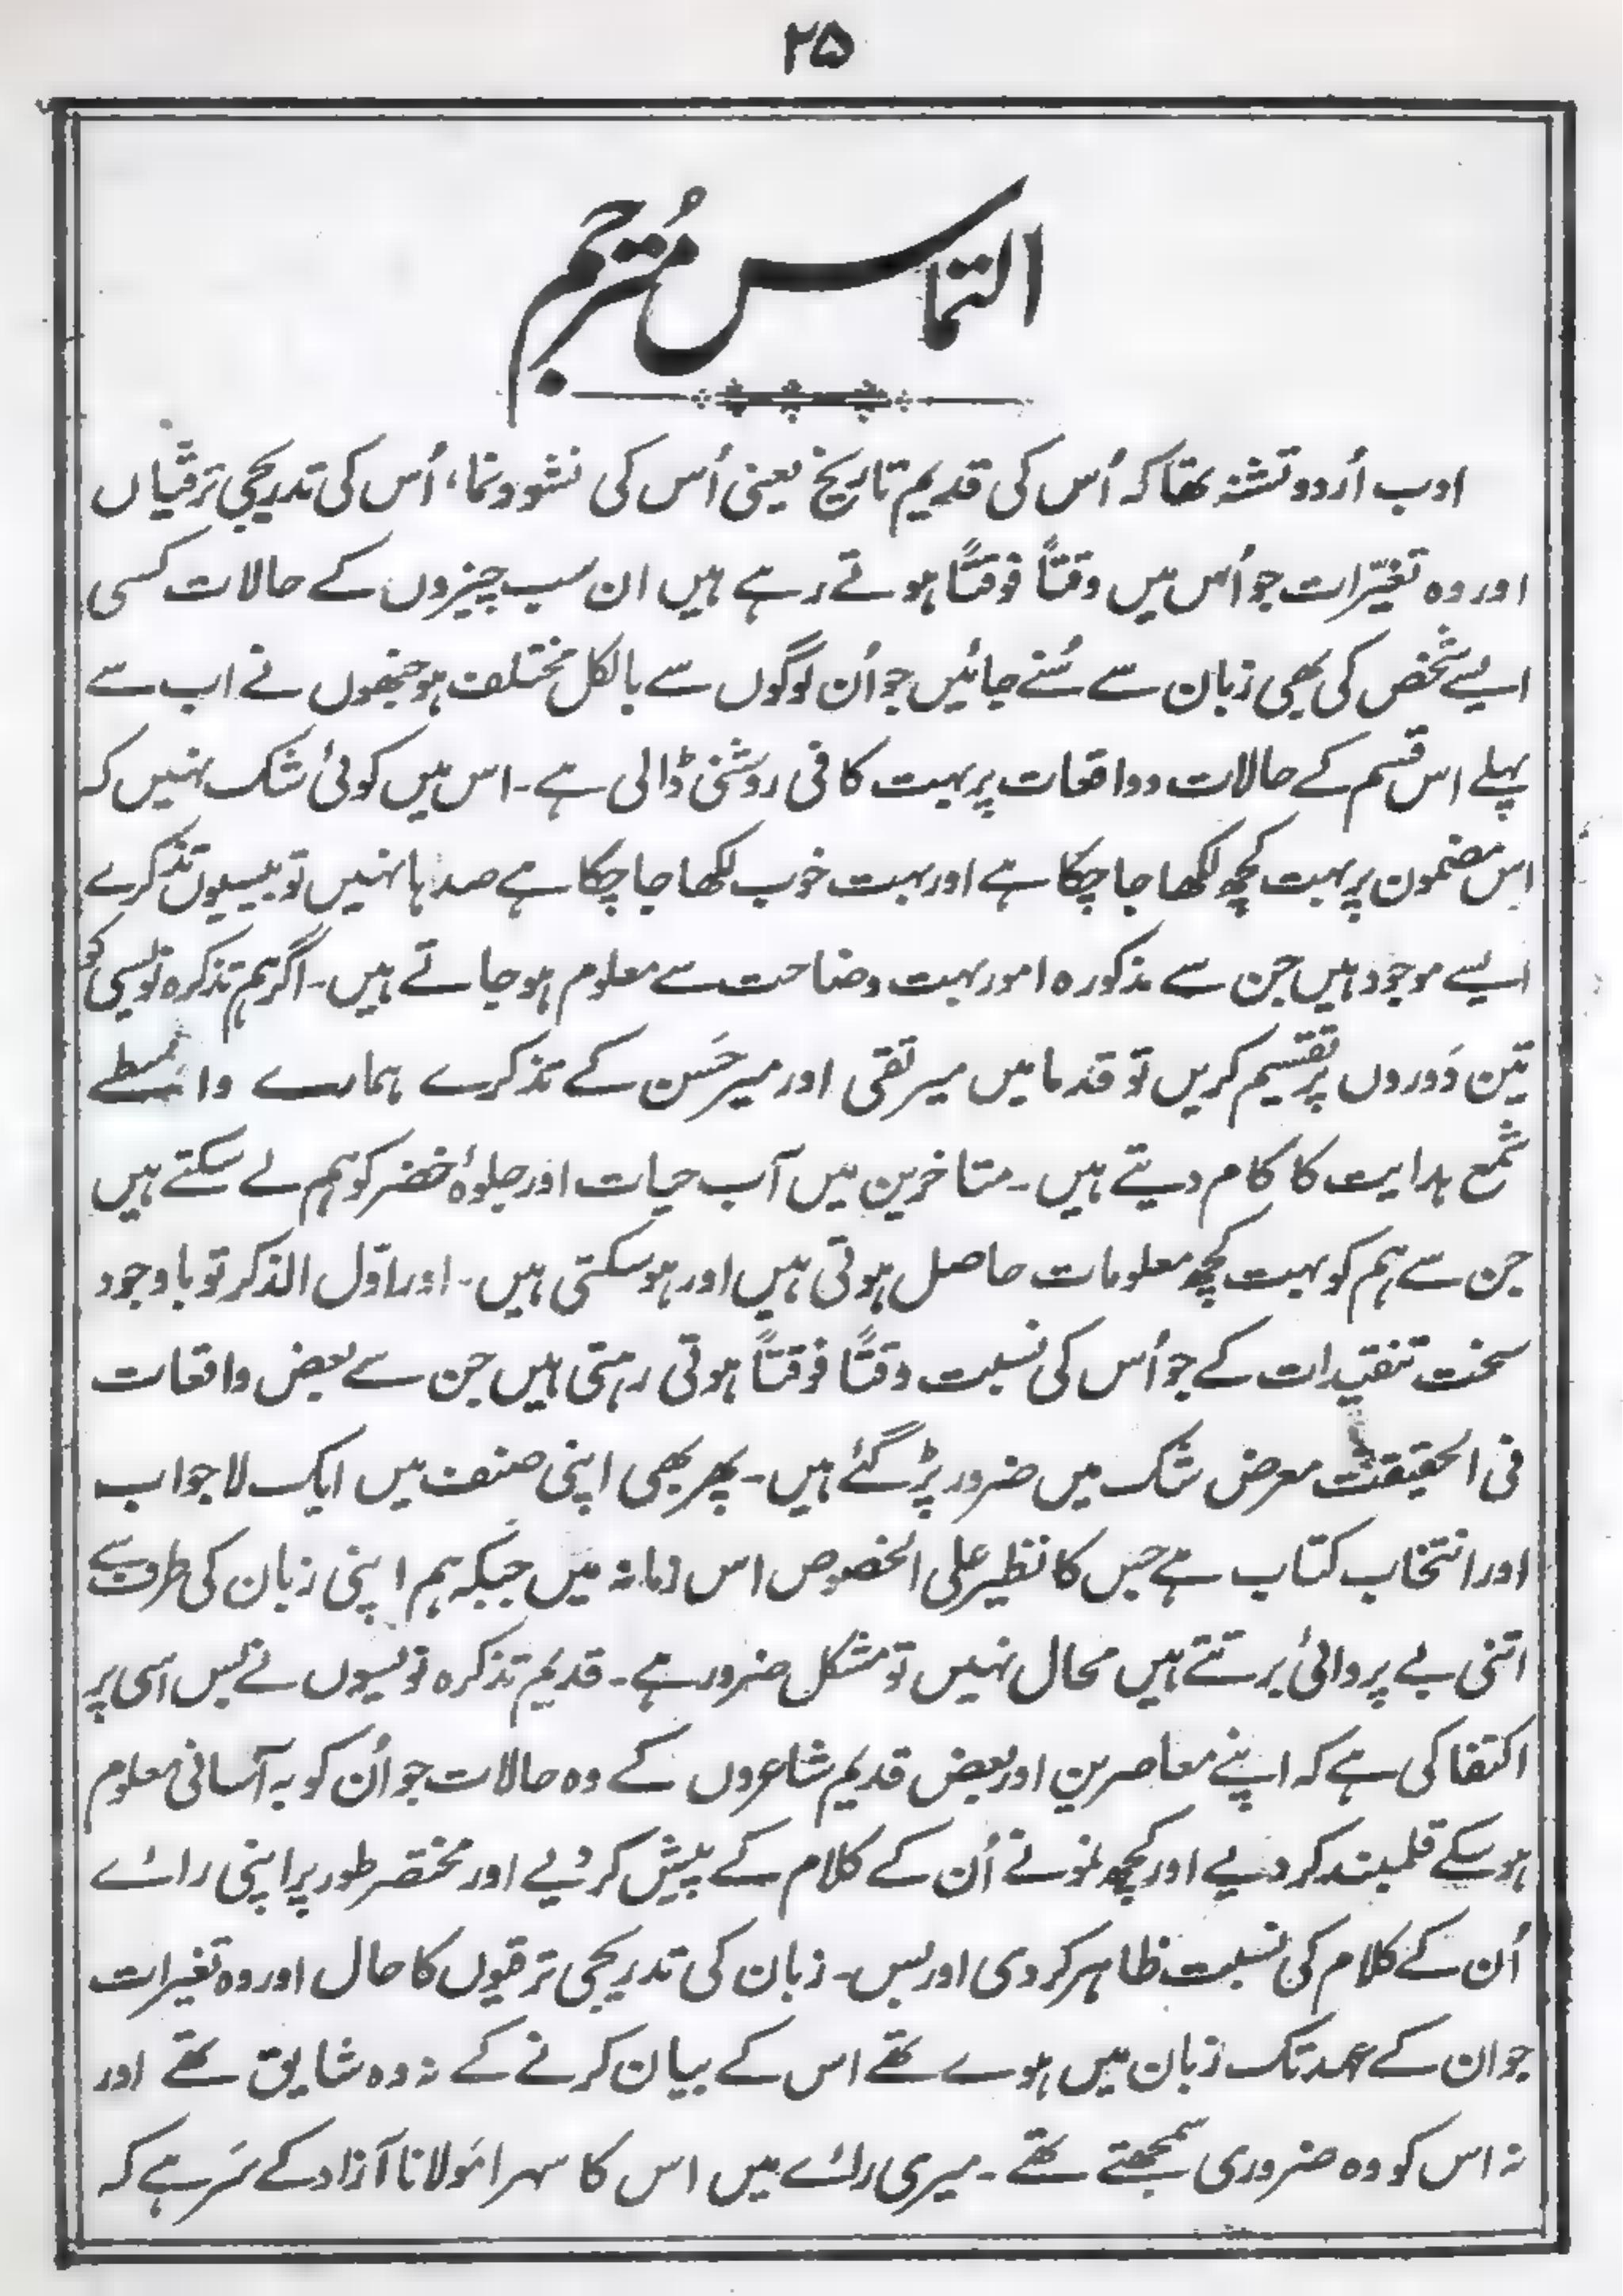 ۲۵
التماس مُترجم
ادب اُردو تشنہ تھا کہ اُس کی قدیم تاریخ یعنی اُس کی نشو و نما، اُس کی تدریجی ترقیاں
اور وہ تغیّرات جو اُس میں وقتاً فوقتاً ہوتے رہے ہیں ان سب چیزوں کے حالات کسی
ایسے شخص کی بھی زبان سے سُنے جائیں جو اُن لوگوں سے بالکل مختلف ہو جنھوں نے اب سے
پہلے اس قسم کے حالات و واقعات پر بہت کافی روشنی ڈالی ہے۔ اس میں کوئی شک نہیں کہ
اس مضمون پر بہت کچھ لکھا جا چکا ہے اور بہت خوب لکھا جا چکا ہے صدہا نہیں تو بیسیوں تذکرے
ایسے موجود ہیں جن سے مذکورہ امور بہت وضاحت سے معلوم ہو جاتے ہیں۔ اگر ہم تذکرہ نویسی کو
تین دَوروں پر تقسیم کریں تو قدما میں میر تقی اور میر حَسن کے تذکرے ہمارے واسطے
شمع ہدایت کا کام دیتے ہیں۔ متاخرین میں آب حیات اور جلوۂ خضر کو ہم لے سکتے ہیں
جن سے ہم کو بہت کچھ معلومات حاصل ہوتی ہیں اور ہو سکتی ہیں۔ اور اوّل الذکر تو باوجود
سخت تنقیدات کے جو اُس کی نسبت وقتاً فوقتاً ہوتی رہتی ہیں جن سے بعض واقعات
فی الحقیقت معرض شک میں ضرور پڑ گئے ہیں۔ پھر بھی اپنی صنف میں ایک لاجواب
اور انتخاب کتاب ہے جس کا نظیر علی الخصوص اس زمانہ میں جبکہ ہم اپنی زبان کی طرف سے
اتنی بے پروائی برتتے ہیں محال نہیں تو مشکل ضرور ہے۔ قدیم تذکرہ نویسوں نے بس اسی پر
اکتفا کی ہے کہ اپنے معاصرین اور بعض قدیم شاعروں کے وہ حالات جو اُن کو بہ آسانی معلوم
ہو سکے قلمبند کر دیے اور کچھ نمونے اُن کے کلام کے پیش کر دیے اور مختصر طور پر اپنی رائے
اُن کے کلام کی نسبت ظاہر کر دی اور بس۔ زبان کی تدریجی ترقیوں کا حال اور وہ تغیرات
جو ان کے عہد تک زبان میں ہوے تھے اس کے بیان کرنے کے نہ وہ شایق تھے اور
نہ اس کو وہ ضروری سمجھتے تھے۔ میری رائے میں اس کا سہرا مَولانا آزاد کے سَر ہے کہ